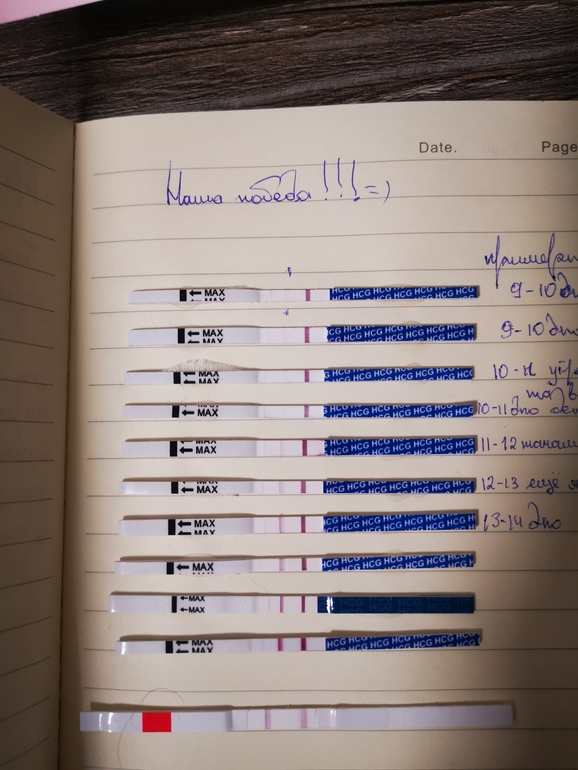 Date. Page
Наша победа!!! =)
← MAX HCG HCG HCG HCG HCG HCG HCG 9-10
← MAX HCG HCG HCG HCG HCG HCG HCG 9-10 дпо
← MAX HCG HCG HCG HCG HCG HCG HCG 10-11
← MAX HCG HCG HCG HCG HCG HCG HCG 10-11 дпо
← MAX HCG HCG HCG HCG HCG HCG HCG 11-12
← MAX HCG HCG HCG HCG HCG HCG HCG 12-13 ещё
← MAX HCG HCG HCG HCG HCG HCG HCG 13-14 дпо
← MAX HCG HCG HCG HCG HCG HCG HCG
← MAX
← MAX
← MAX HCG HCG HCG HCG HCG HCG HCG